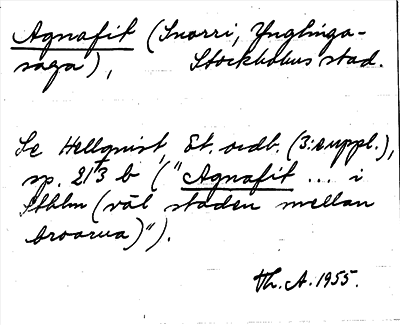 Agnafit (Snorri, Ynglinga-
saga), Stockholms stad.
Se Hellqvist, Et. ordb. (3:e uppl.),
sp. 213 b ("Agnafit ... i
Sthlm (väl staden mellan
broarna)").
Th. A. 1955.